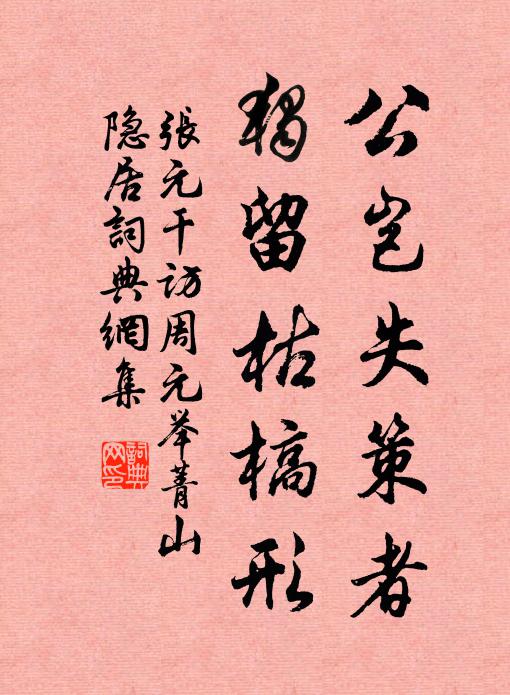 公岂失策者
独留枯槁形
張元干访周元举菁山
隐居詞典網集
詞典网印